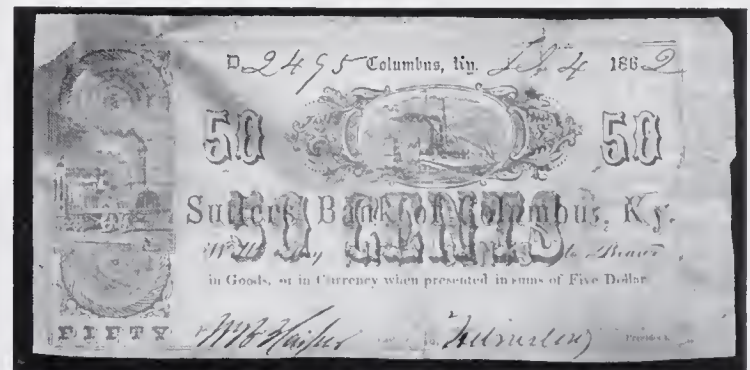 D 2495 Columbus, Ky. Feb 4 1862
50 50
Sutlers Bank of Columbus, Ky.
50 CENTS
Will Pay to Bearer
in Goods, or in Currency when presented in sums of Five Dollar
FIFTY
President